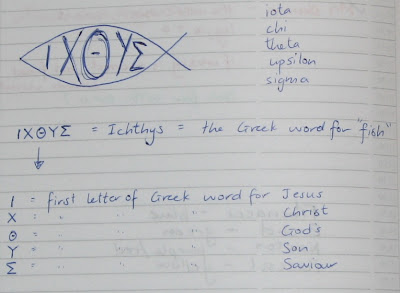 ΙΧΘΥΣ
iota
chi
theta
upsilon
sigma
ΙΧΘΥΣ = Ichthys = the Greek word for "fish"
Ι = first letter of Greek word for Jesus
Χ = " " " Christ
Θ = " " " God's
Υ = " " " Son
Σ = " " " Saviour